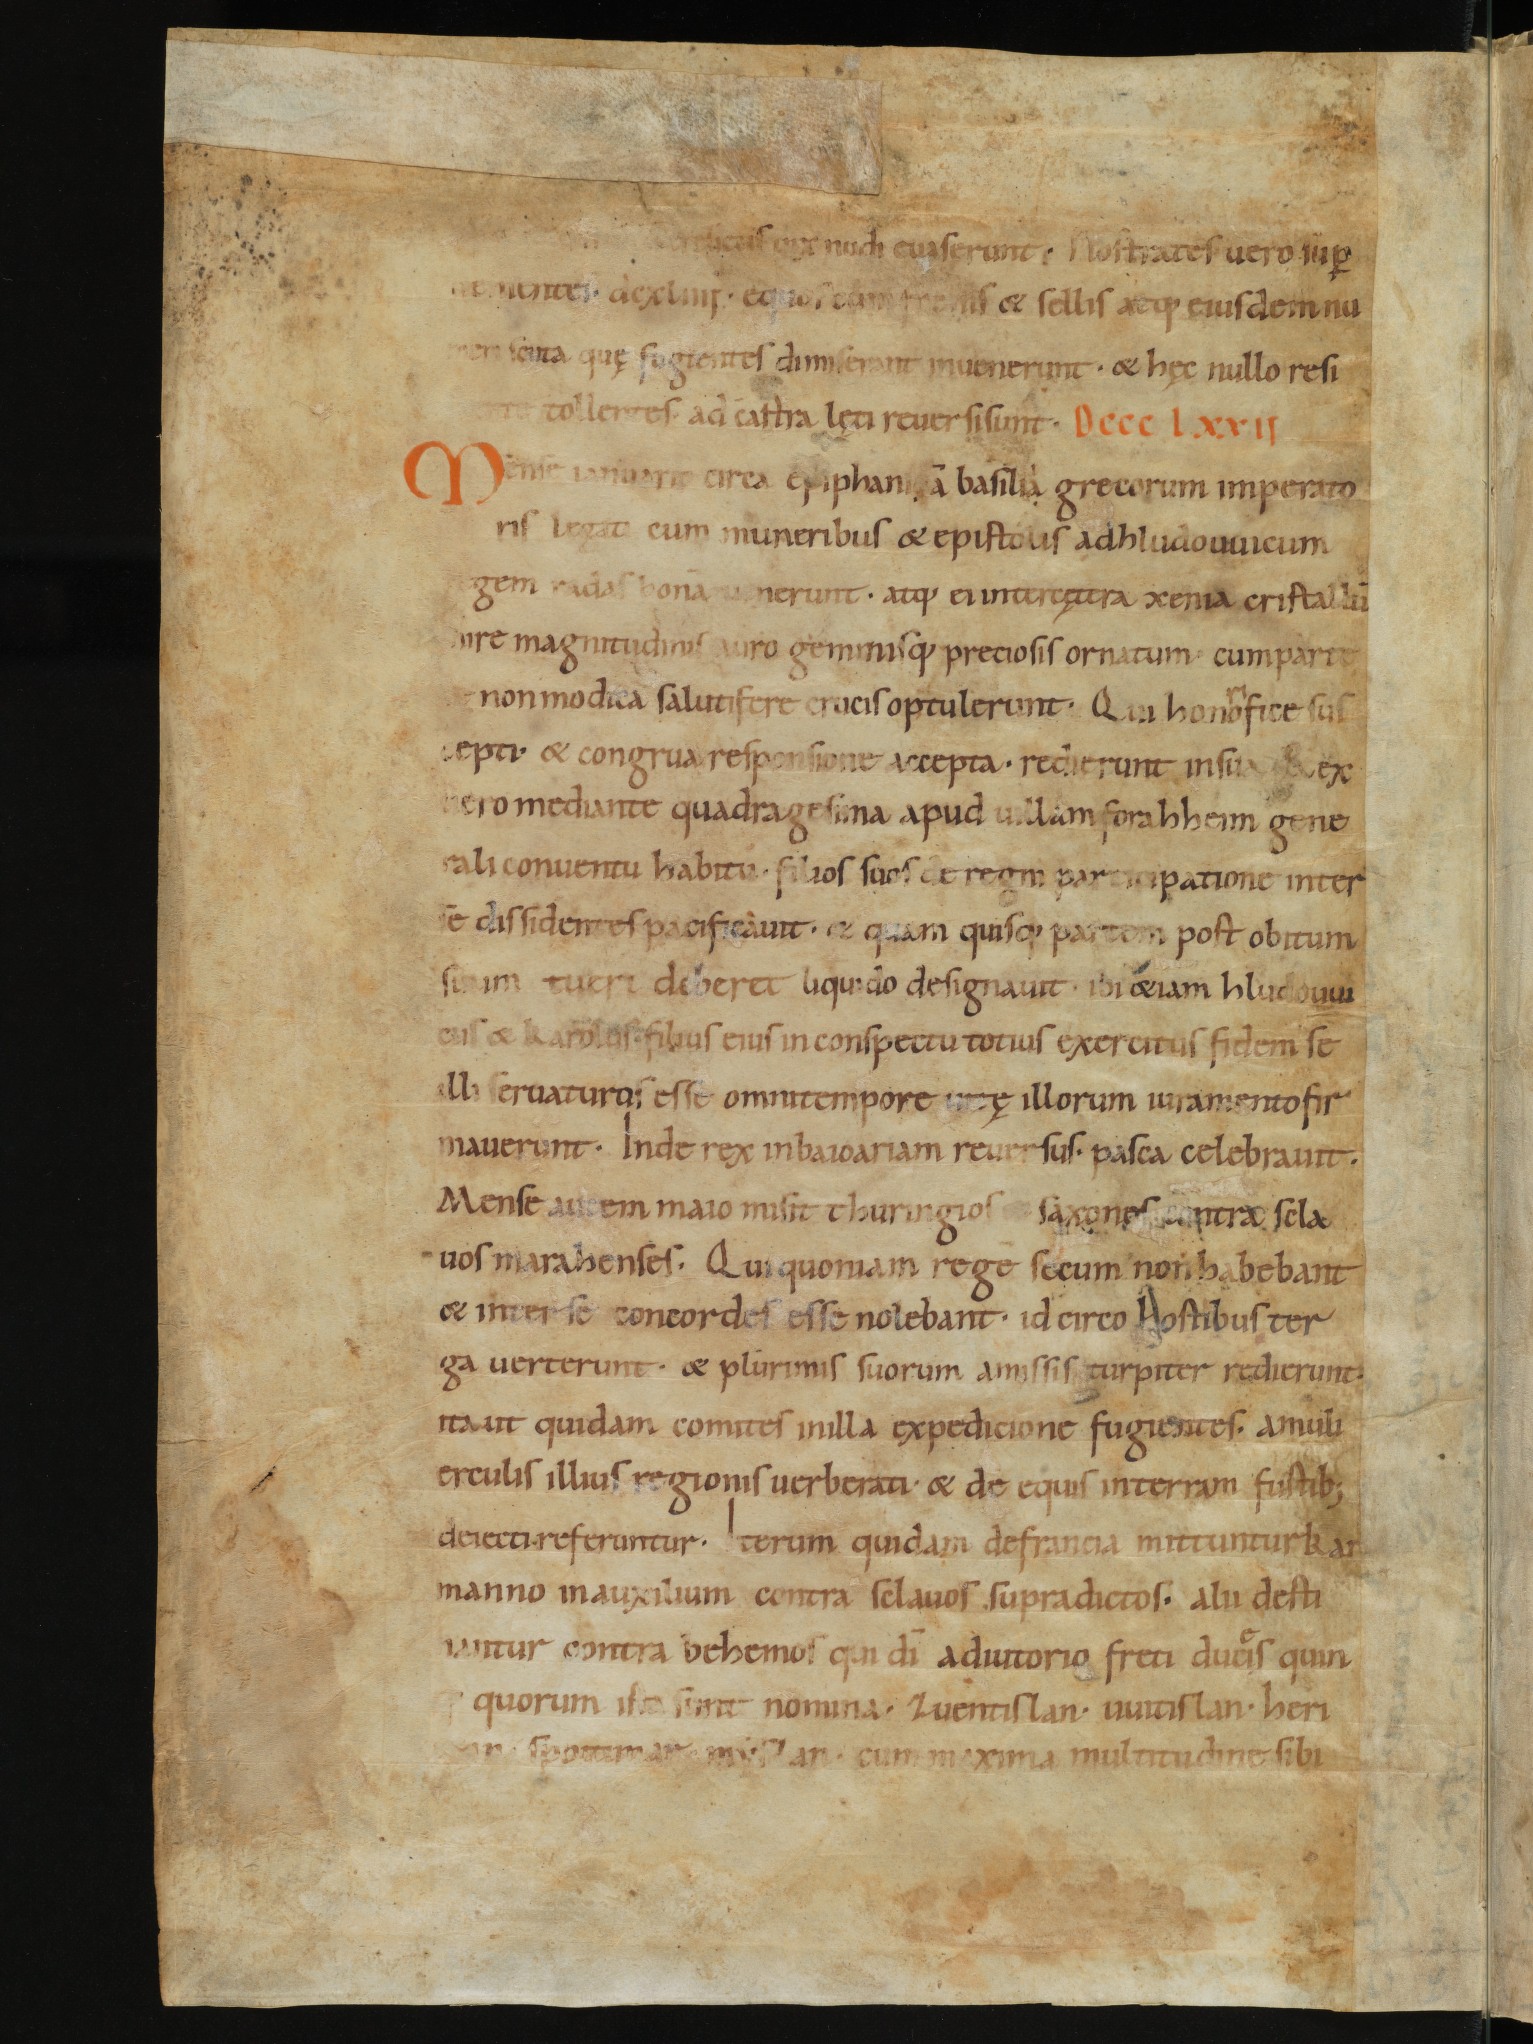 uix nudi euaserunt. Nostrates uero sup
uenientes dcxliiij. equos cum frenis & sellis atq; eiusdem nu
meri scuta quę fugientes dimiserant inuenerunt. & hęc nullo resi
tollentes. ad castra lęti reuersi sunt. Dccc Lxxii
Mense ianuario circa epiphaniā basilii grecorum imperato
ris legati cum muneribus & epistolis ad hludouuicum
regem radasbonā uenerunt. atq; ei inter cętera xenia cristallū
mire magnitudinis auro gemmisq; preciosis ornatum. cum parte
non modica salutifere crucis optulerunt. Qui honorifice sus
cepti. & congrua responsione accepta. redierunt in sua. Rex
uero mediante quadragesima apud uillam forahheim gene
rali conuentu habitu. filios suos de regni participatione inter
se dissidentes pacificauit. & quam quisq; partem post obitum
suum tueri deberet liquido designauit. ibi &iam hludouui
cus & karolus. filius eius in conspectu totius exercitus fidem se
illi seruaturos esse omni tempore uitę illorum iuramento fir
mauerunt. Inde rex in baioariam reuersus. pasca celebrauit.
Mense autem maio misit thuringios saxones contra scla
uos marahenses. Qui quoniam regē secum non habebant
& inter se concordes esse nolebant. id circo hostibus ter
ga uerterunt. & plurimis suorum amissis turpiter redierunt.
ita ut quidam comites in illa expedicione fugientes. a muli
erculis illius regionis uerberati. & de equis in terram fustib;
deiecti. referuntur. Iterum quidam de francia mittuntur kar
manno in auxilium contra sclauos supradictos. alii desti
nantur contra behemos qui dī adiutorio freti duces quin
q; quorum ista sunt nomina. Zuentislan. uuitislan. heri
man. spoitimar. moyslan. cum maxima multitudine sibi